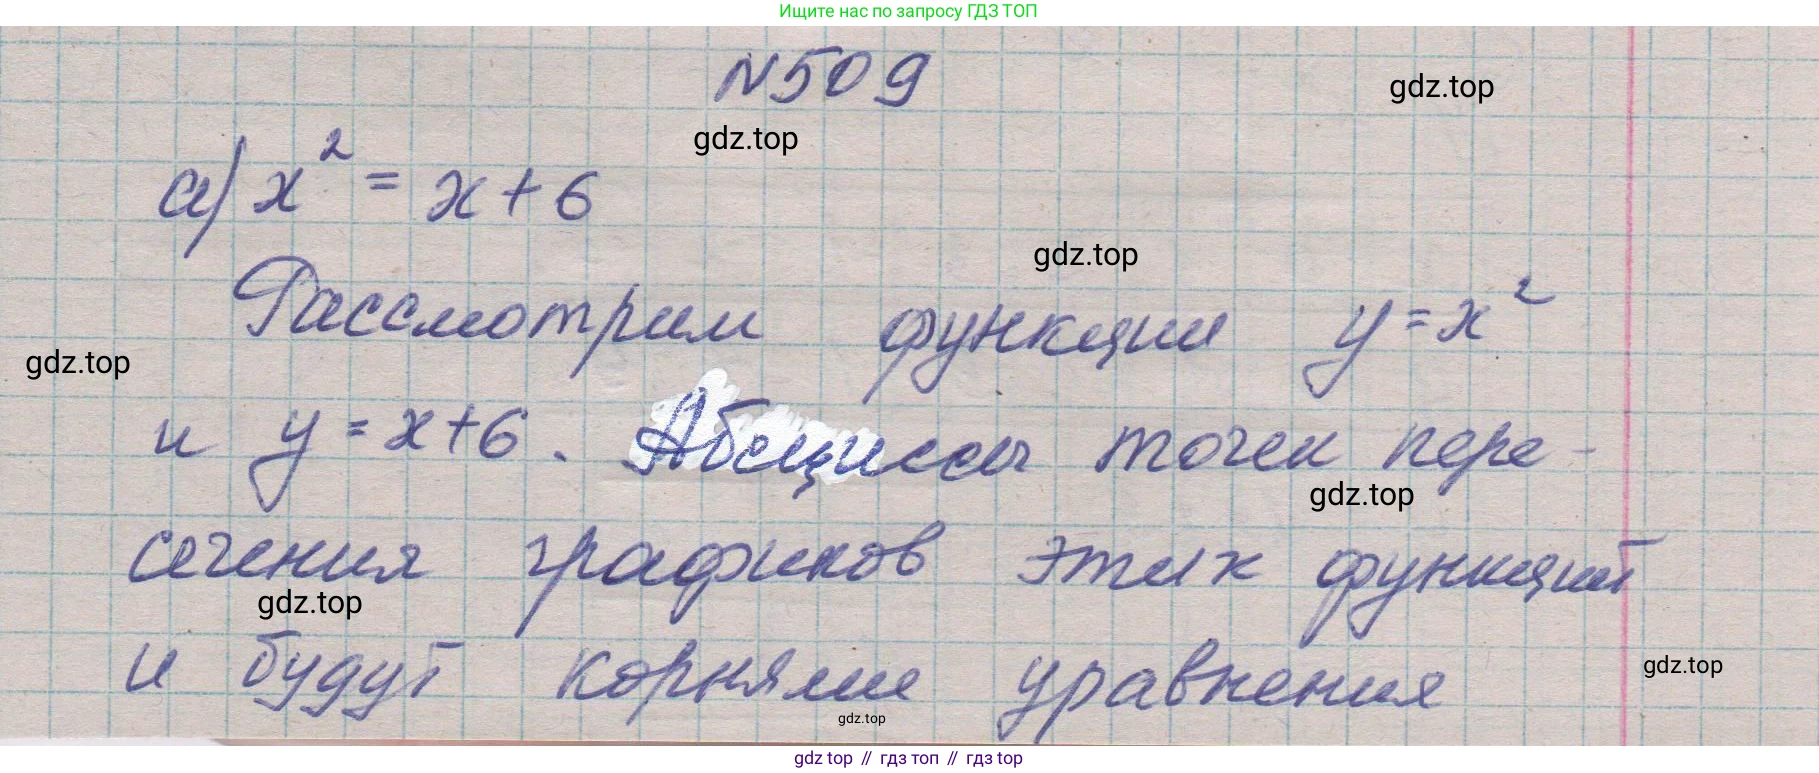 Ищите нас по запросу ГДЗ ТОП
N509
gdz.top
gdz.top
а) x² = x + 6
gdz.top
Рассмотрим функции y = x²
gdz.top
и y = x + 6. Абсциссы точек пере-
gdz.top
сечения графиков этих функций
gdz.top
и будут корнями уравнения
gdz.top
gdz.top
gdz top // гдз топ // гдз top